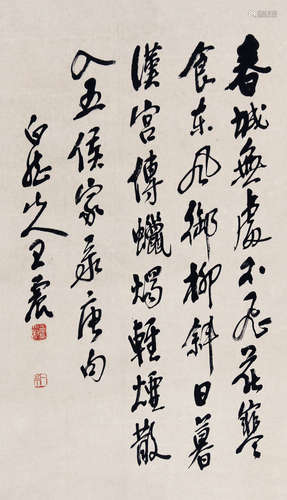 春城無處不飛花寒
食東風御柳斜日暮
漢宮傳蠟燭輕煙散
入五侯家录唐句
白龍山人王震